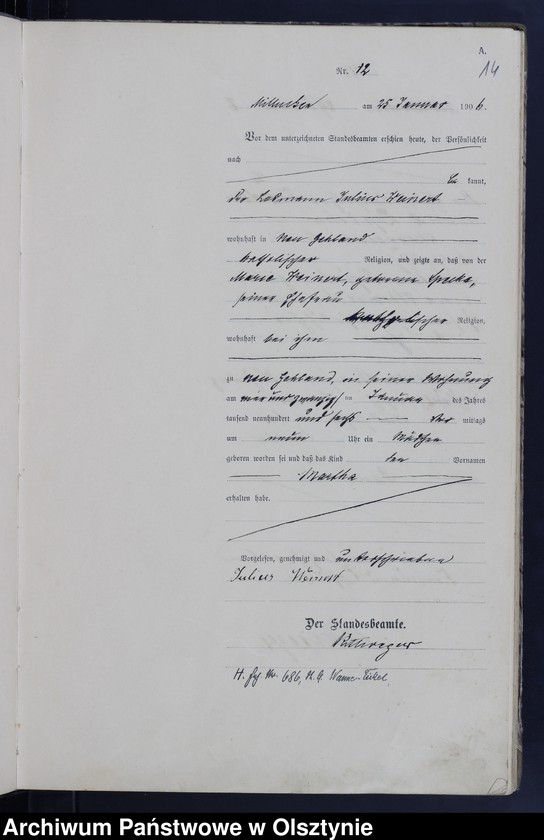 A.
14
Nr. 12
am 25 Januar 1906.
Vor dem unterzeichneten Standesbeamten erschien heute, der Persönlichkeit
nach
be kannt,
Der Julius Weinert
wohnhaft in Neu Gehland
katholischer Religion, und zeigte an, daß von der
Maria Weinert, geborene
seiner Ehefrau
Religion,
wohnhaft bei ihm
zu Neu Gehland, in seiner Wohnung
am vierundzwanzigsten Januar des Jahres
tausend neunhundert und sechs Vor mittags
um neun Uhr ein Mädchen
geboren worden sei und daß das Kind den Vornamen
Martha
erhalten habe.
Vorgelesen, genehmigt und unterschrieben
Julius Weinert
Der Standesbeamte.
Nr. 686, Wanne-Eickel
Archiwum Państwowe w Olsztynie